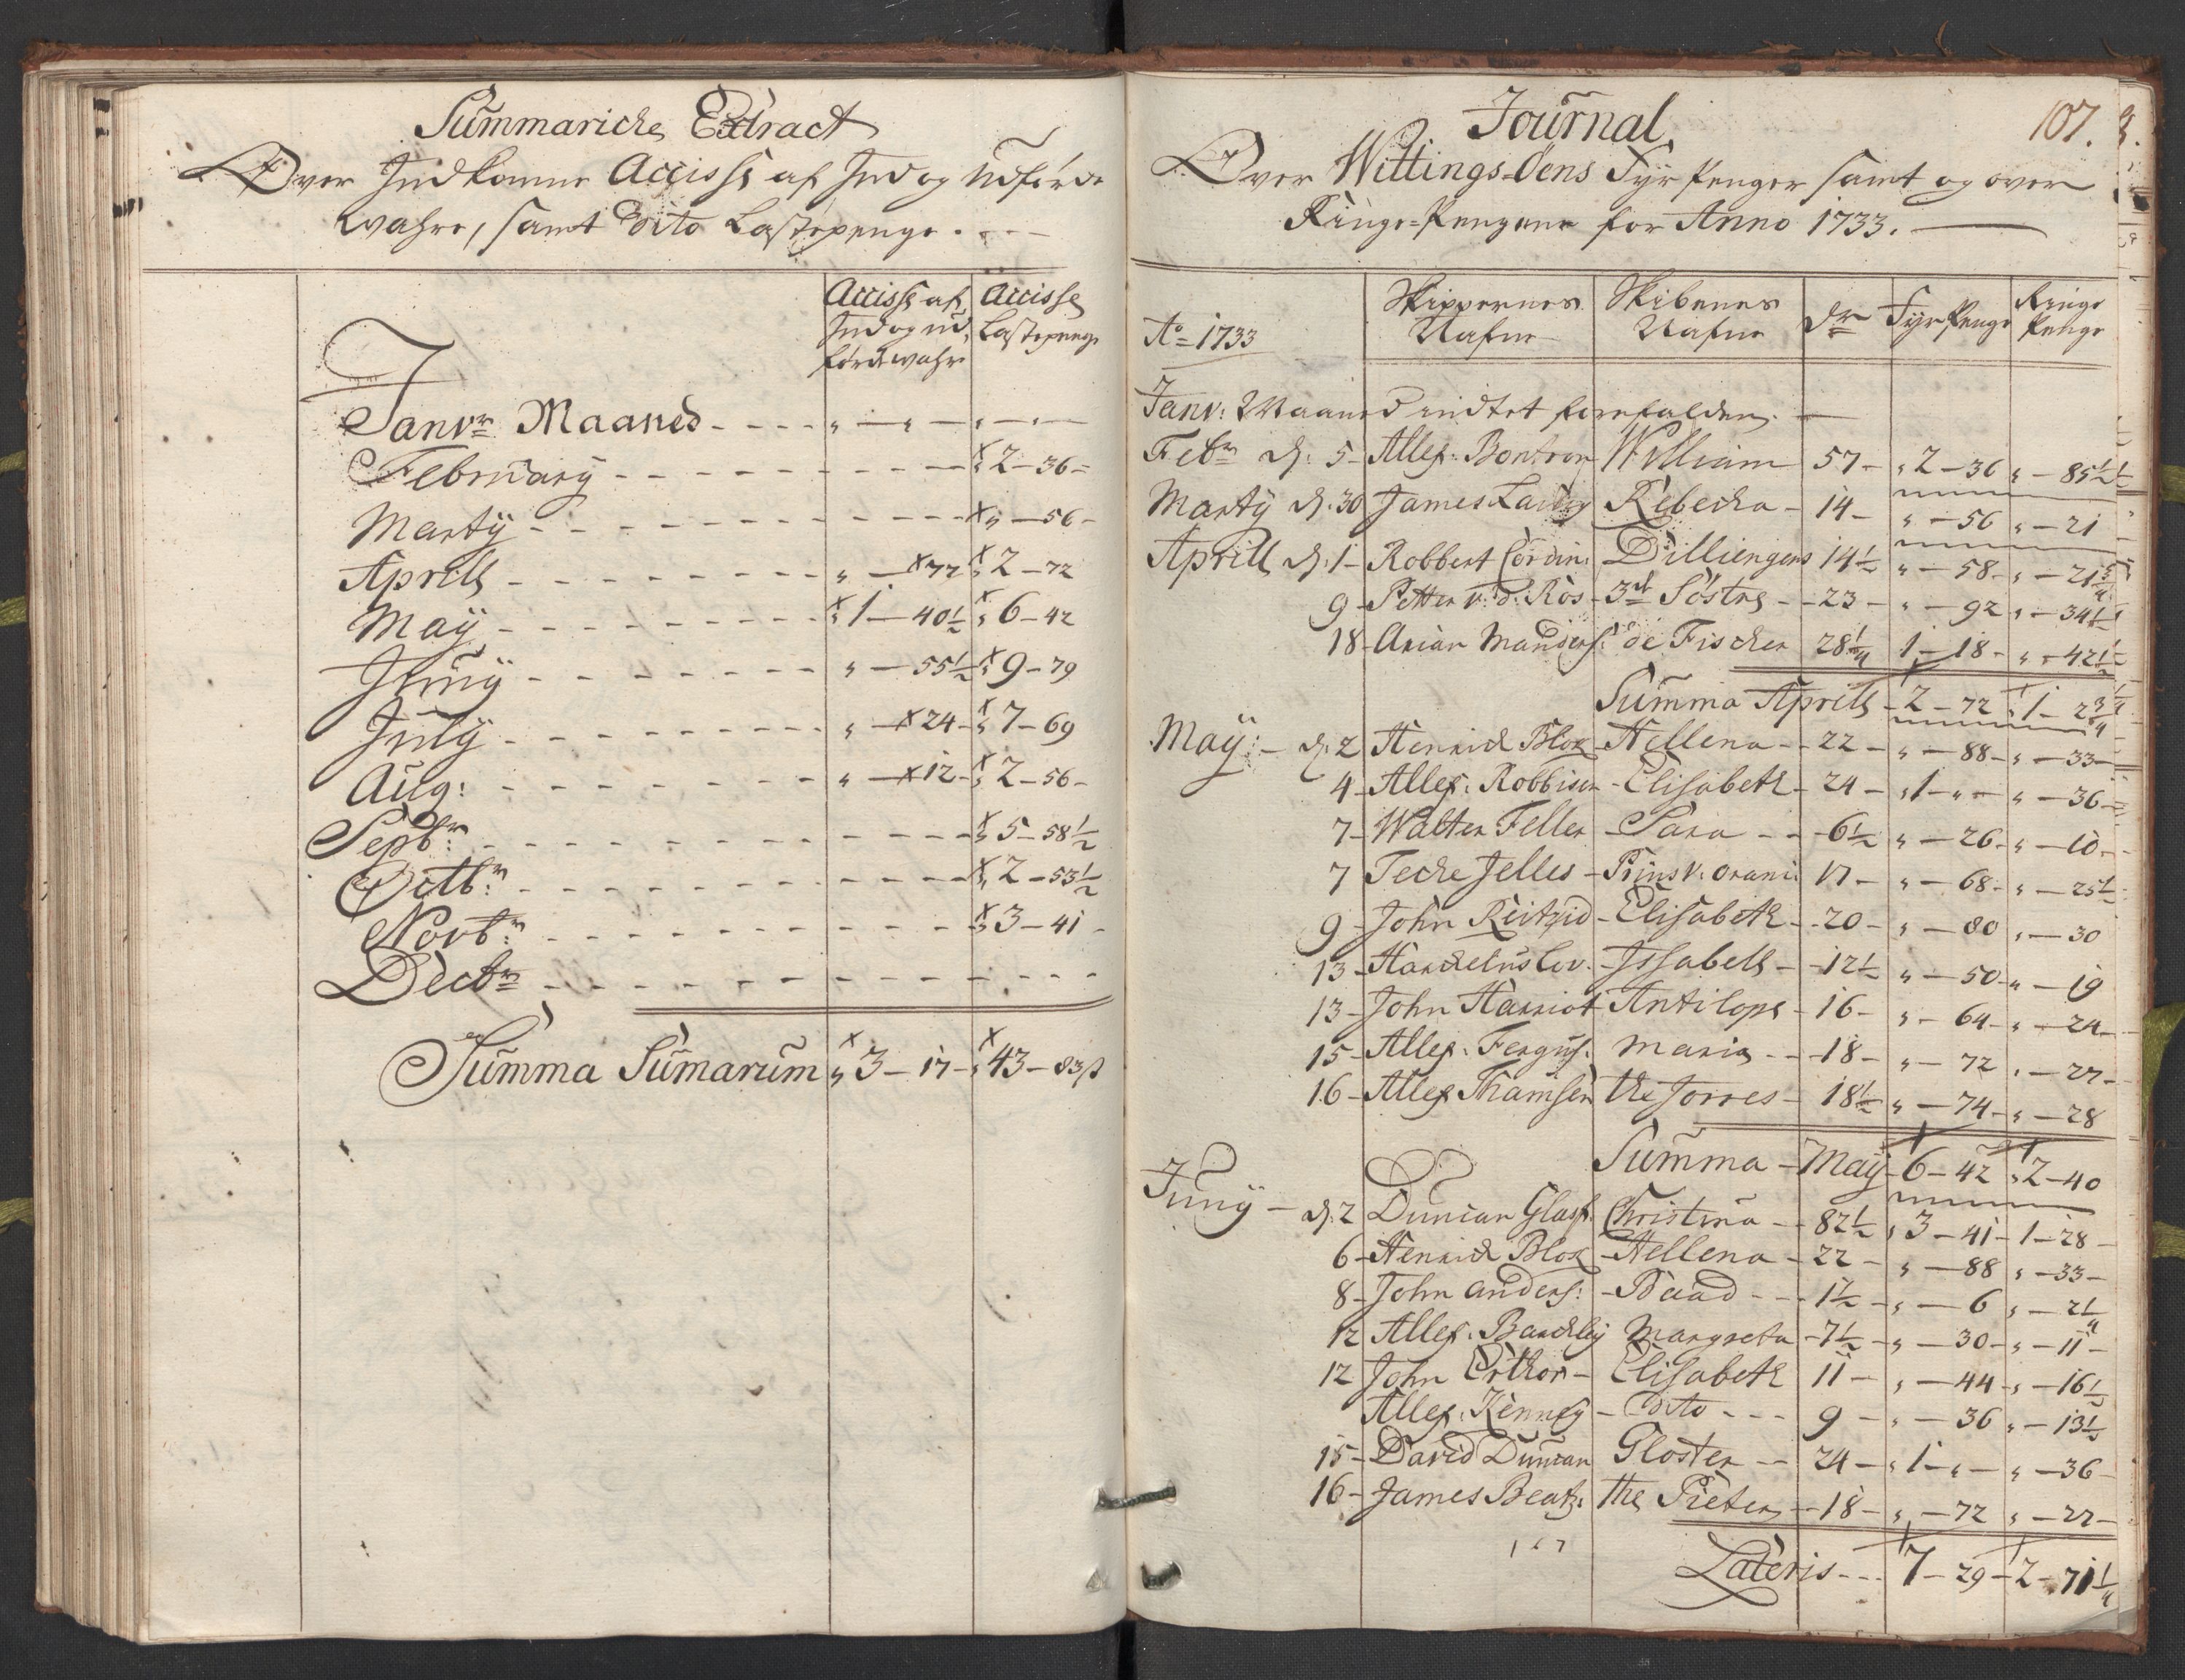 Summariche Extract
Over Indkomne Accisse af Ind og Udførde
wahre, samt Dito Lastepenge.
Accisse af Ind og ud førde wahre
Accisse Lastepenge
Janvr Maaned - - - - „ — „ — „ — „ —
February - - - - „ 2 — 36 =
Marty - - - - „ — 56 -
Aprill - - - - „ — 77 „ 2 — 72
May - - - - „ 1 — 40½ „ 6 — 42
Juny - - - - „ — 55½ „ 9 — 79
July - - - - „ — 24 - „ 7 — 69
Aug: - - - - „ — 12 - „ 2 — 56 -
Septbr: - - - - „ 5 — 58½
Octbr: - - - - „ 2 — 53½
Novbr: - - - - „ 3 — 41 -
Decbr - - - -
Summa Sumarum „ 3 — 17 - „ 43 — 83 ß
107.
Journal
Over Wittings-Øens Fyr Penger samt og over
Ringe-Pengene for Anno 1733.
Ao 1733
Skippernes Nafne
Skibenes Nafne
Fyr Penge
Ringe Penge
Janv: Maaned indtet forefalden.
Febr d. 5 - Allex: Bontron William 57 - „ 2 — 36 „ — 85½
Marty d. 30 James Rebecka - 14 - „ — 56 „ — 21
Aprill d. 1 - Robbert Cordin: Dilliengens 14½ „ — 58 - „ — 21¾
9 - Petter v: d: Ros - 3de Söstre - - 23 - „ — 92 „ — 34½
18 - Arian Manders: de Fischer 28¼ 1 — 18 - „ — 42½
Summa Aprill - 2 — 72 „ 1 — 23¾
May: - d. 2 Henrich Blok - Hellena - - 22 - „ — 88 - „ — 33 -
4 - Allex: Robbison - Elisabeth - 24 - „ 1 — „ — „ — 36 -
7 - Walter Feller - Sara - - - 6½ „ — 26 - „ — 10 -
7 Tecke Jelles - Prins v: Orani: 17 - „ — 68 - „ — 25½
9 - John Elisabeth - - 20 - „ — 80 „ — 30
13 - Jssabell - - 12½ „ — 50 - „ — 19
13 - John Harriot Antilope - 16 - „ — 64 - „ — 24 -
15 - Allex: Fergus: Maria - - - 18 - „ — 72 „ — 27 -
16 - Allex Thamsen the Jorres - 18½ „ — 74 - „ — 28
Summa - May - 6 — 42 „ 2 — 40
Juny - d. 2 Duncan Glass: Christina - - 82½ „ 3 — 41 - 1 — 28 -
6 - Henrich Blok - Hellena - 22 - „ — 88 „ — 33 -
8 - John Anders: - Baad - - - 1½ - „ — 6 „ — 2¼
12 Allex: Barckley Margreta - 7½ - „ — 30 - „ — 11 -
12 John Erthor - Elisabeth 11 - „ — 44 - „ — 16½
Allex: Kenney - Dito - - - 9 - „ — 36 „ — 13½
15 - David Duncan Gloster - - 24 - „ 1 — „ — „ — 36 -
16 - James Beatz: The Pieter - - 18 - „ — 72 „ — 27 -
Lateris - - - 7 — 29 - 2 — 71¼